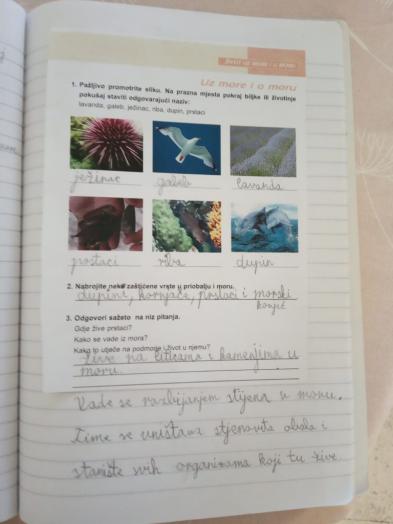 Život uz more i u moru
Uz more i o moru
1. Pažljivo promotrite sliku. Na prazna mjesta pokraj biljke ili životinje
pokušaj staviti odgovarajući naziv:
lavanda, galeb, ježinac, riba, dupin, prstaci
ježinac galeb lavanda
prstaci riba dupin
2. Nabrojite neke zaštićene vrste u priobalju i moru.
dupini, kornjače, prstaci i morski
konjić
3. Odgovori sažeto na niz pitanja.
Gdje žive prstaci?
Kako se vade iz mora?
Kako to utječe na podmorje i život u njemu?
Žive na liticama i kamenjima u
moru.
Vade se razbijanjem stijena u moru.
Time se uništava stjenovita obala i
stanište svih organizama koji tu žive.